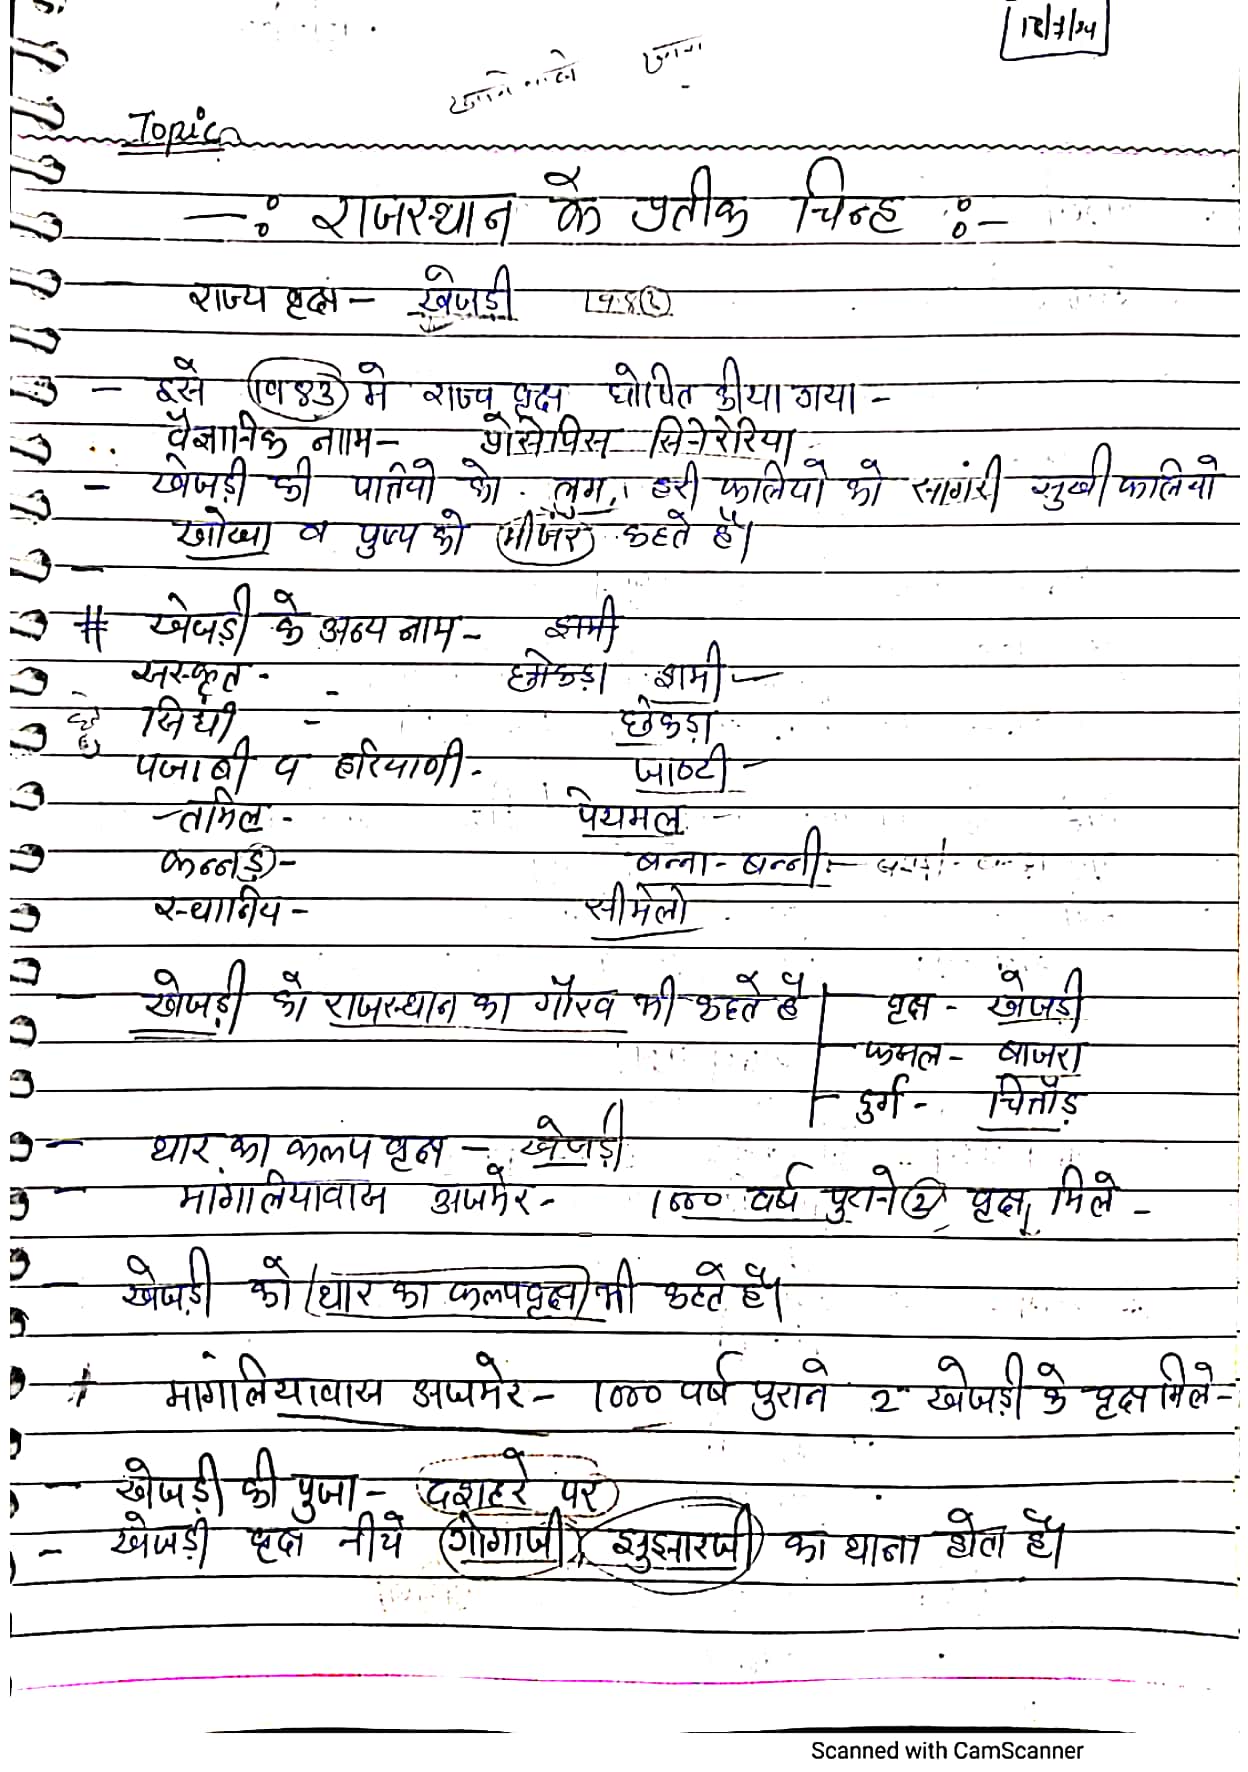 18/7/24
Topic
-: राजस्थान के प्रतीक चिन्ह :-
राज्य वृक्ष - खेजड़ी 198③
- इसे 1983 मे राज्य वृक्ष घोषित कीया गया -
वैज्ञानिक नाम - प्रोसेपिस सिनेरेरिया
- खेजड़ी की पात्तियो को लुम, हरी फालियो को सागंरी सुखी फालियो
खोखा व पुष्प को मींजर कहते है।
# खेजड़ी के अन्य नाम - शमी
सस्कृत - छोकड़ा शमी -
सिधी - छोकड़ा
पजाबी व हरियाणी - जाण्टी -
तमिल - पेयमल -
कन्नड़ - बन्ना - बन्नी -
स्थानिय - सीमेलो
- खेजड़ी को राजस्थान का गौरव भी कहते है वृक्ष - खेजड़ी
फसल - बाजरा
दुर्ग - चित्तौड़
- थार का कलप वृक्ष - खेजड़ी
- मांगालियावास अजमेर - 1000 वर्ष पुराने ② वृक्ष मिले -
- खेजड़ी को (थार का कलपवृक्ष) भी कहते है।
+ मांगालियावास अजमेर - 1000 वर्ष पुराने 2 खेजड़ी के वृक्ष मिले -
- खेजड़ी की पुजा - दशहरे पर
- खेजड़ी वृक्ष नीचे गोगाजी, झुझारजी का थाना होता है।
Scanned with CamScanner